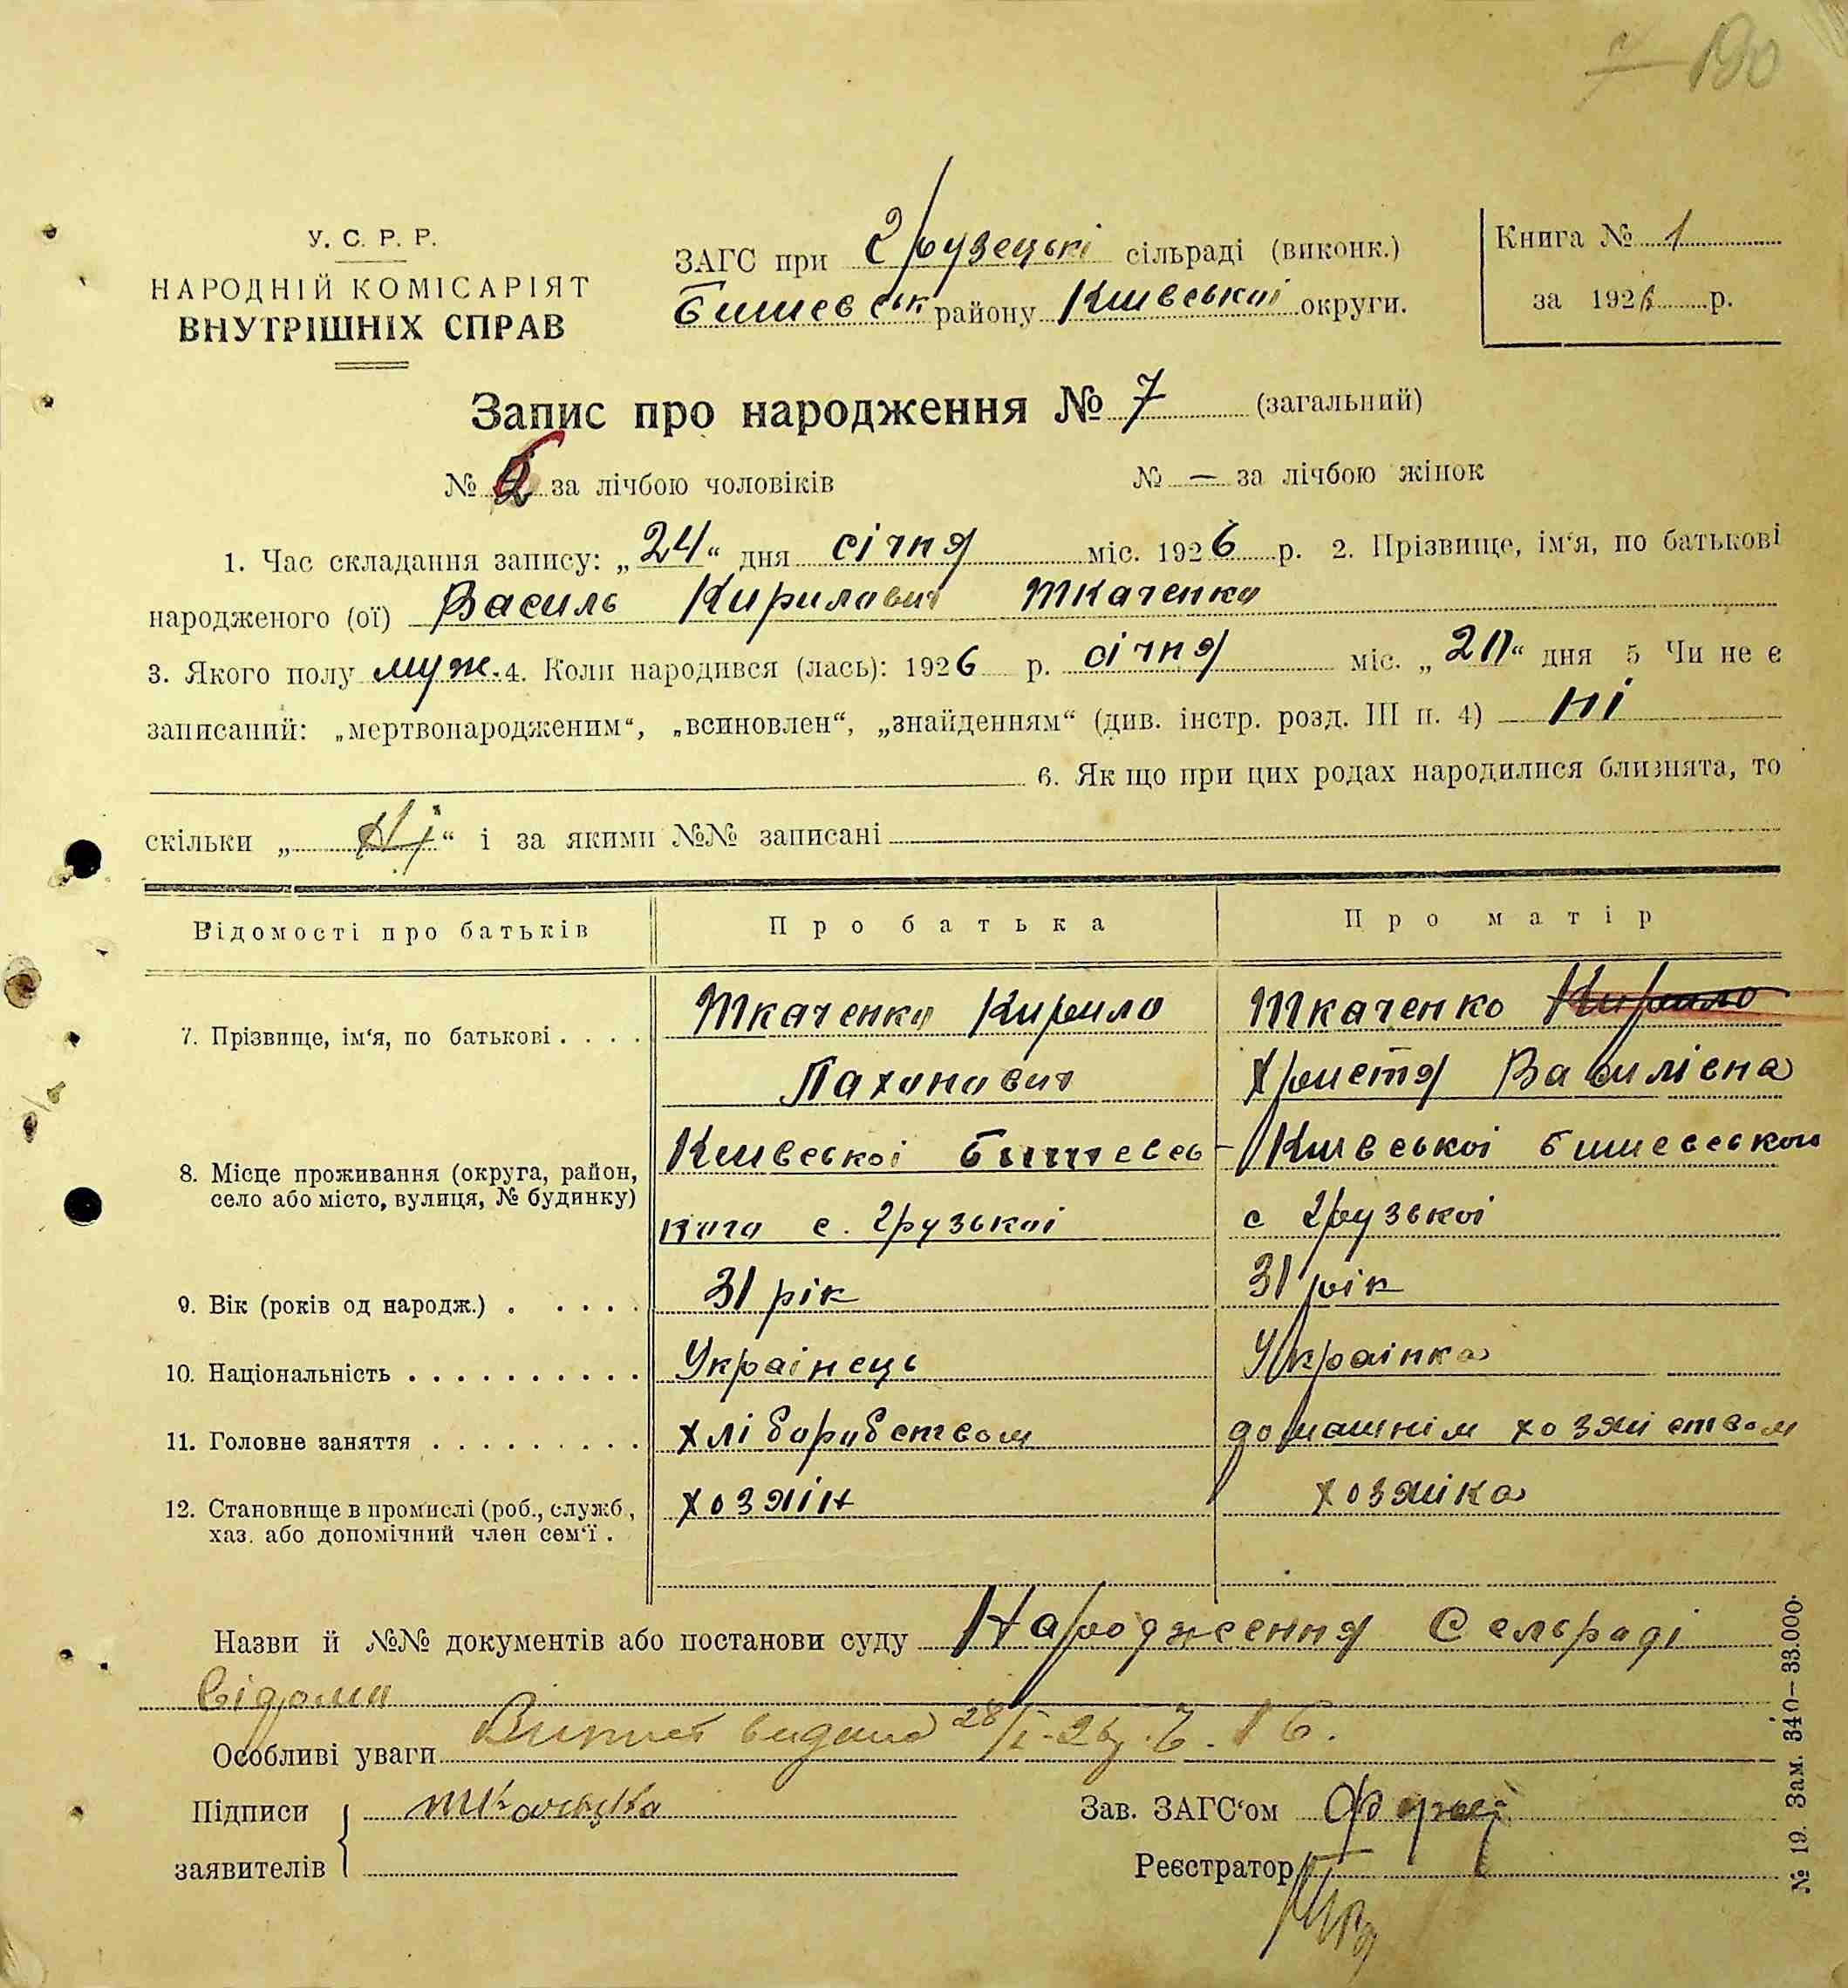 190
У. С. Р. Р.
НАРОДНІЙ КОМІСАРІЯТ
ВНУТРІШНІХ СПРАВ
ЗАГС при Грузецькі сільраді (виконк.)
Бишевськ району Київської округи.
Книга № 1
за 1926 р.
Запис про народження № 7 (загальний)
№ 6 за лічбою чоловіків № — за лічбою жінок
1. Час складання запису: „24“ дня січня міс. 1926 р. 2. Прізвище, ім‘я, по батькові
народженого (ої) Василь Кирилович Ткаченко
3. Якого полу муж. 4. Коли народився (лась): 1926 р. січня міс. „20“ дня 5 Чи не є
записаний: „мертвонародженим“, „всиновлен“, „знайденням“ (див. інстр. розд. III п. 4) ні
6. Як що при цих родах народилися близнята, то
скільки „ Ні “ і за якими №№ записані
Відомості про батьків Про батька Про матір
7. Прізвище, ім‘я, по батькові . . . . Ткаченко Кирило Ткаченко Кирило
Пахонович Христя Василієна
8. Місце проживання (округа, район, село або місто, вулиця, № будинку) Київскої Бишевсь- Київської бишевського
кого с. Грузької с Грузької
9. Вік (років од народж.) . . . . . 31 рік 31 рік
10. Національність . . . . . . . . . . Українець Українка
11. Головне заняття . . . . . . . . . хліборобством домашнім хозяйством
12. Становище в промислі (роб., служб., хозяїн хозяйка
хаз. або допомічний член сем‘ї .
Назви й №№ документів або постанови суду Народження Сельраді
відома
Особливі уваги Випис видано 28/I-26 р.
Підписи
заявителів
Зав. ЗАГС‘ом
Реєстратор
№ 19. Зам. 340—33.000.